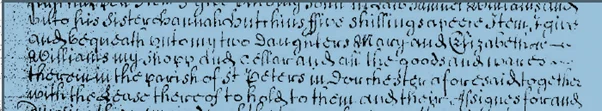 unto his sister hannah Hutchins ffive shillings apeece Item I give
and bequeath unto my two Daughters Mary and Elizabeth
Williams my shopp and Cellar and all the goods and wares
therein in the parish of St Peters in Dorchester aforesaid together
with the Lease thereof to hold to them and their Assignes for and